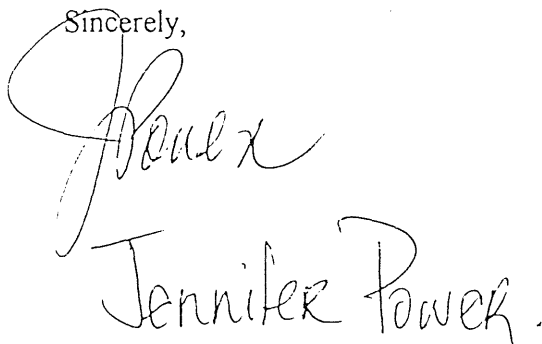 Sincerely,
JPower
Jennifer Power.